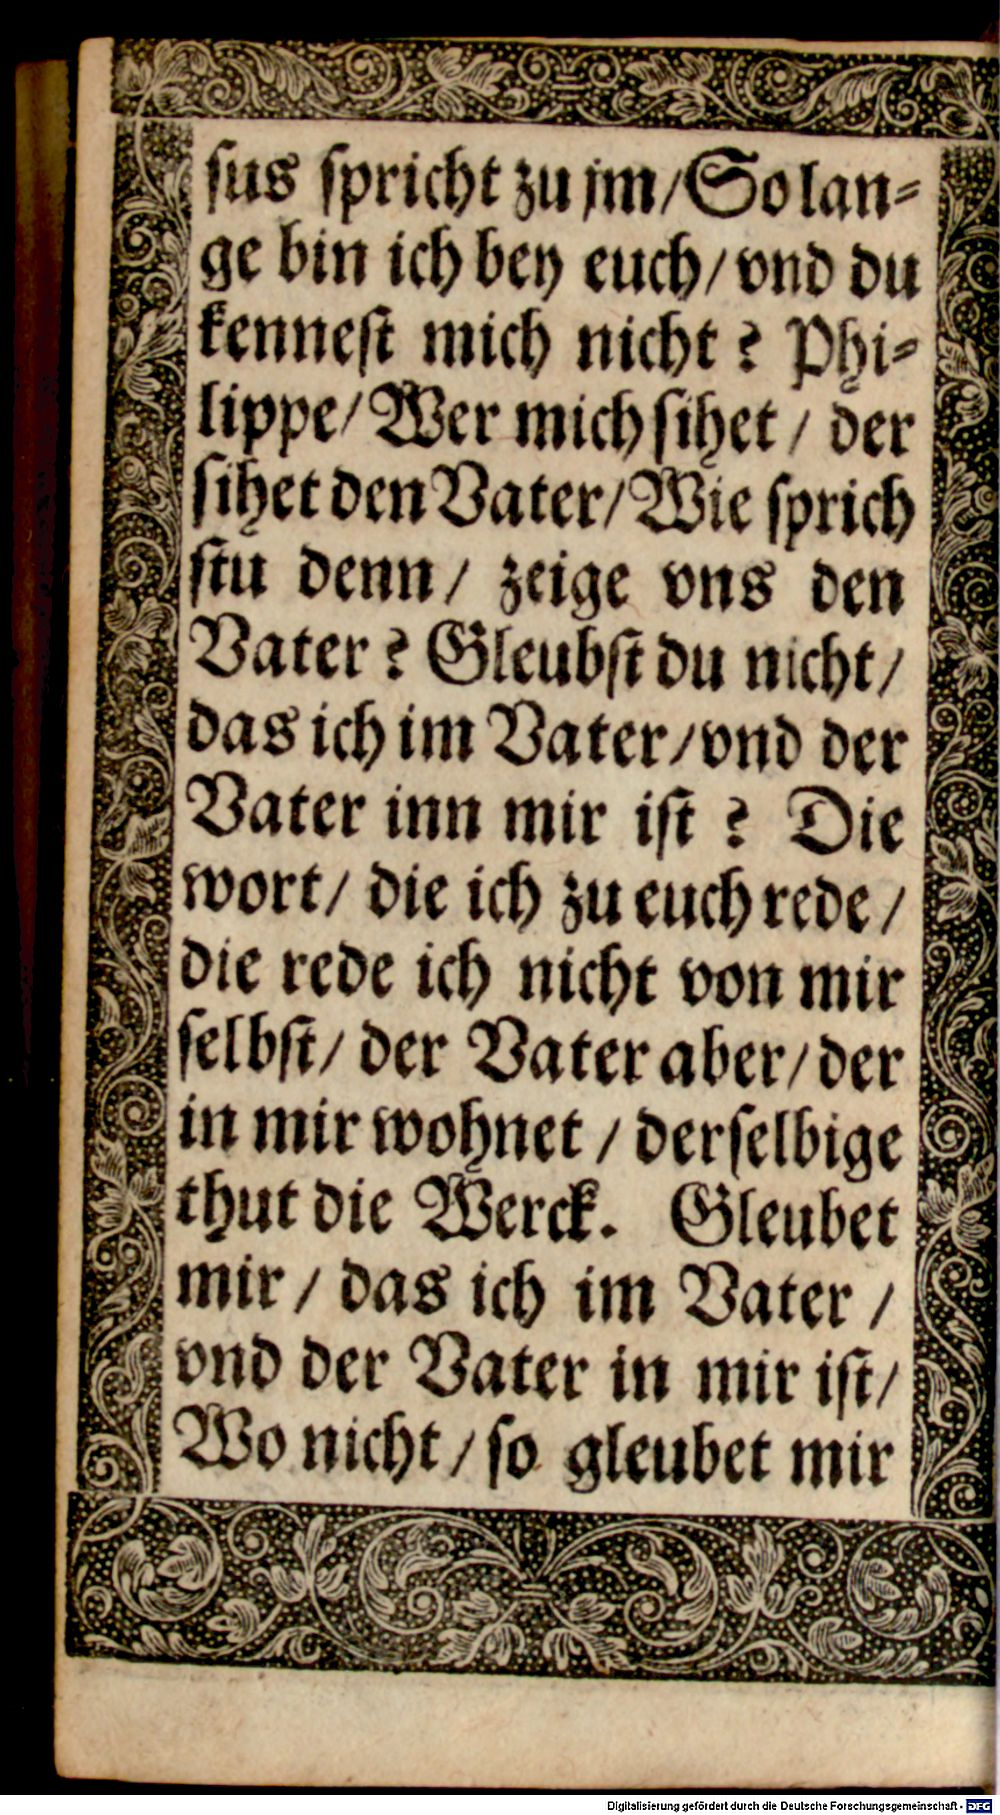 ſus ſpricht zu jm/ So lan⸗
ge bin ich bey euch/ vnd du
kenneſt mich nicht? Phi⸗
lippe/ Wer mich ſihet/ der
ſihet den Vater/ Wie ſprich
ſtu denn/ zeige vns den
Vater? Gleubſt du nicht/
das ich im Vater/ vnd der
Vater inn mir iſt? Die
wort/ die ich zu euch rede/
die rede ich nicht von mir
ſelbſt/ der Vater aber/ der
in mir wohnet/ derſelbige
thut die Werck. Gleubet
mir/ das ich im Vater/
vnd der Vater in mir iſt/
Wo nicht/ ſo gleubet mir
Digitalisierung gefördert durch die Deutsche Forschungsgemeinschaft - DFG